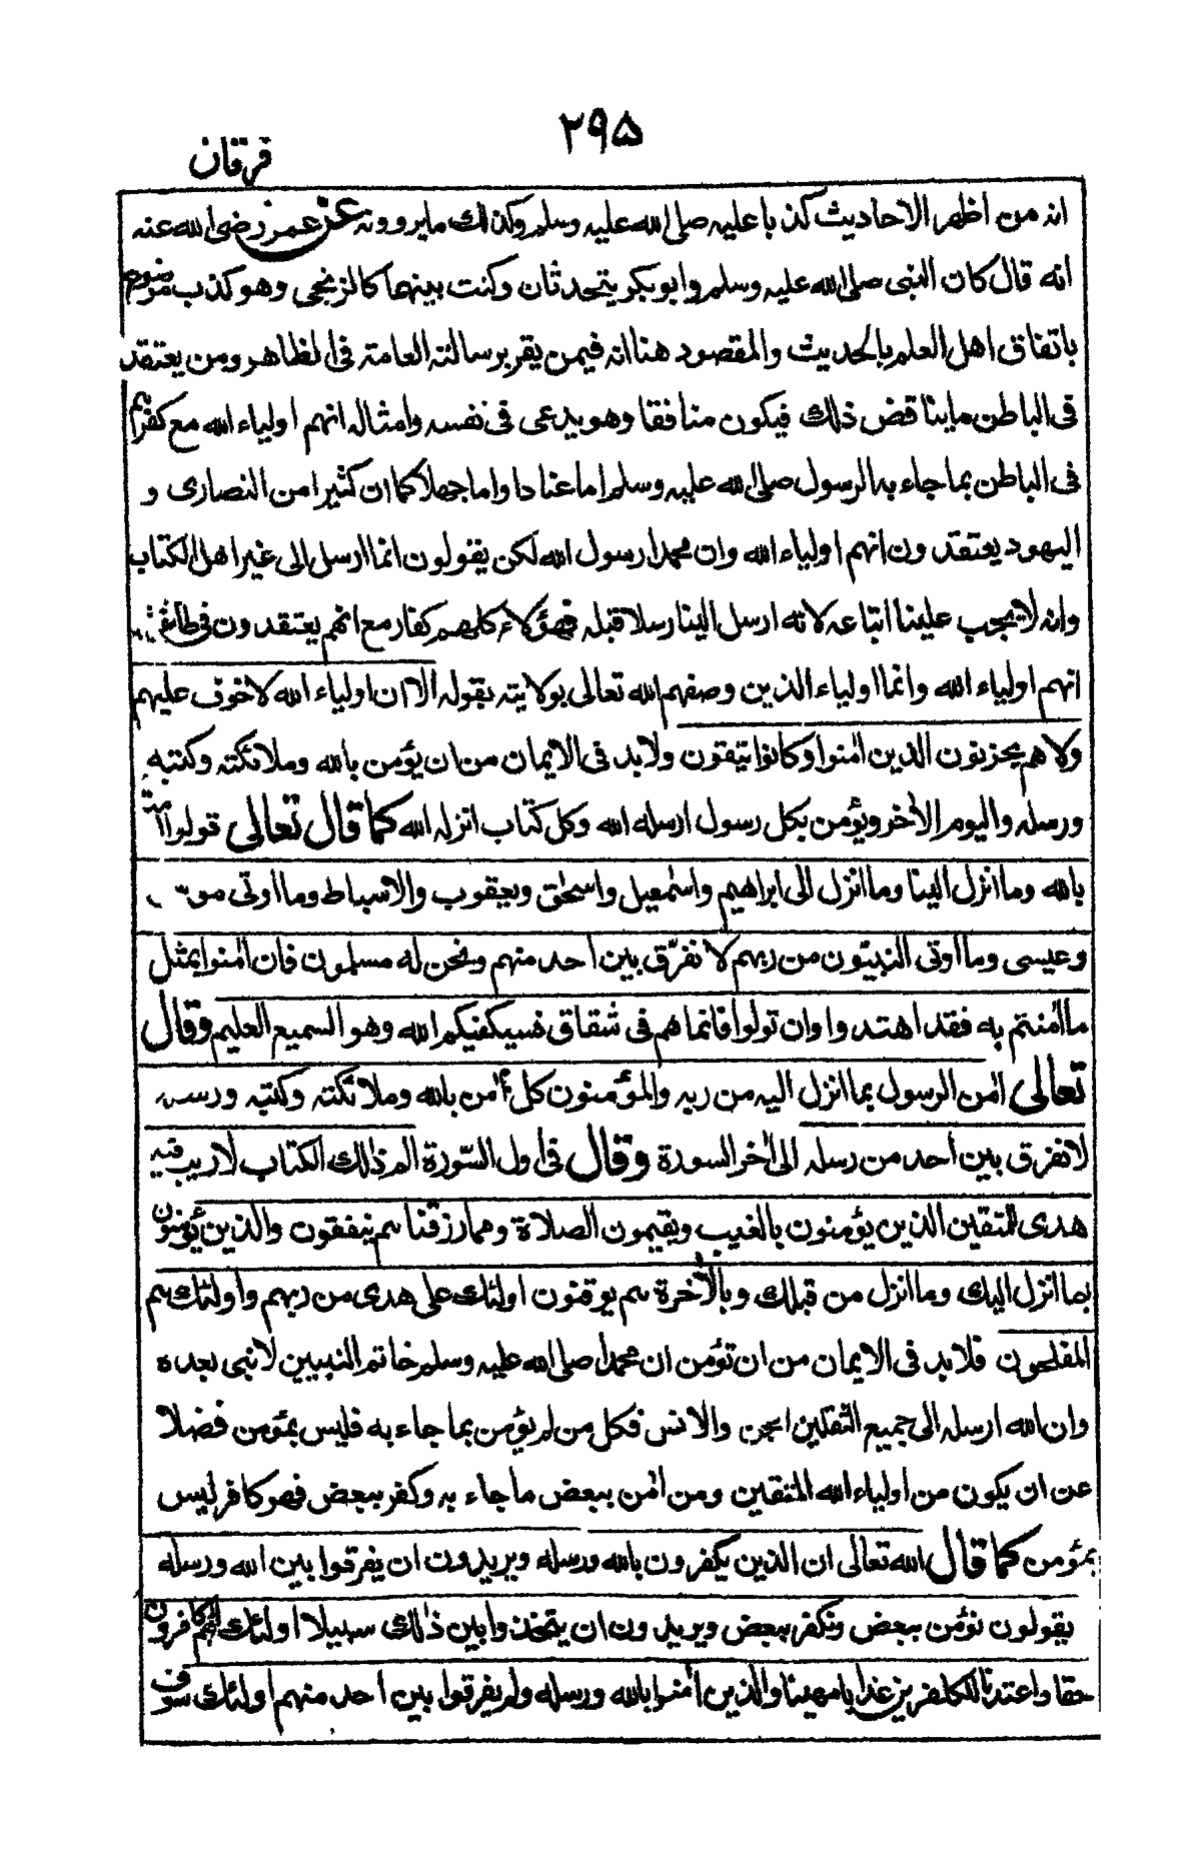 ٢٩٥
فرقان
انه من اظهر الاحاديث كذبا عليه صلى الله عليه وسلم وكذلك ما يروونه عن عمر رضى الله عنه
انه قال كان النبى صلى الله عليه وسلم وابو بكر يتحدثان وكنت بينهما كالزنجى وهو كذب موضوع
باتفاق اهل العلم بالحديث والمقصود هنا انه فيمن يقر برسالته العامة فى الظاهر ومن يعتقد
فى الباطن ما يناقض ذلك فيكون منافقا وهو يدعى فى نفسه وامثاله انهم اولياء الله مع كفرهم
فى الباطن بما جاء به الرسول صلى الله عليه وسلم اما عنادا واما جهلا كما ان كثيرا من النصارى و
اليهود يعتقدون انهم اولياء الله وان محمدا رسول الله لكن يقولون انما ارسل الى غير اهل الكتاب
وانه لا يجب علينا اتباعه لانه ارسل الينا رسلا قبله فهؤلاء كلهم كفار مع انهم يعتقدون فى طائفتهم
انهم اولياء الله وانما اولياء الذين وصفهم الله تعالى بولايته بقوله الا ان اولياء الله لا خوف عليهم
ولا هم يحزنون الذين اٰمنوا وكانوا يتقون ولا بد فى الايمان من ان يؤمن بالله وملائكته وكتبه
ورسله واليوم الاٰخر ويؤمن بكل رسول ارسله الله وكل كتاب انزله الله كما قال تعالى قولوا اٰمنا
بالله وما انزل الينا وما انزل الى ابراهيم واسمٰعيل واسحٰق ويعقوب والاسباط وما اوتى موسى
وعيسى وما اوتى النبيّون من ربهم لا نفرّق بين احد منهم ونحن له مسلمون فان اٰمنوا بمثل
ما اٰمنتم به فقد اهتدوا وان تولوا فانما هم فى شقاق فسيكفيكهم الله وهو السميع العليم وقال
تعالى اٰمن الرسول بما انزل اليه من ربه والمؤمنون كل اٰمن بالله وملائكته وكتبه ورسله
لا نفرق بين احد من رسله الى اٰخر السورة وقال فى اول السّورة الم ذلك الكتاب لا ريب فيه
هدى للمتقين الذين يؤمنون بالغيب ويقيمون الصلاة ومما رزقناهم ينفقون والذين يؤمنون
بما انزل اليك وما انزل من قبلك وبالاٰخرة هم يوقنون اولئك على هدى من ربهم واولئك هم
المفلحون فلا بد فى الايمان من ان تؤمن ان محمدا صلى الله عليه وسلم خاتم النبيين لا نبى بعده
وان الله ارسله الى جميع الثقلين الجن والانس فكل من لم يؤمن بما جاء به فليس بمؤمن فضلا
عن ان يكون من اولياء الله المتقين ومن اٰمن ببعض ما جاء به وكفر ببعض فهو كافر ليس
بمؤمن كما قال الله تعالى ان الذين يكفرون بالله ورسله ويريدون ان يفرقوا بين الله ورسله
يقولون نؤمن ببعض ونكفر ببعض ويريدون ان يتخذوا بين ذٰلك سبيلا اولئك هم الكافرون
حقا واعتدنا للكٰفرين عذابا مهينا والذين اٰمنوا بالله ورسله ولم يفرقوا بين احد منهم اولئك سوف